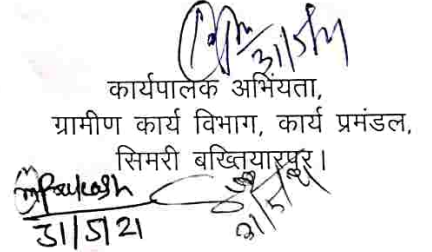 31/5/21
कार्यपालक अभियंता,
ग्रामीण कार्य विभाग, कार्य प्रमंडल,
सिमरी बख्तियारपुर।
Prakash
31/5/21
31/5/21